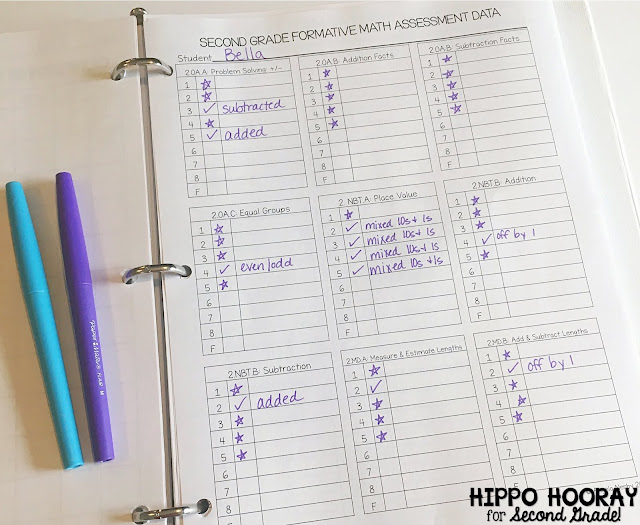 SECOND GRADE FORMATIVE MATH ASSESSMENT DATA
Student: Bella
2.OA.A: Problem Solving +/-
1 ☆
2 ☆
3 ✓ subtracted
4 ☆
5 ✓ added
6
7
8
F
2.OA.B: Addition Facts
1 ☆
2 ☆
3 ☆
4 ☆
5 ☆
6
7
8
F
2.OA.B: Subtraction Facts
1 ☆
2 ☆
3 ☆
4 ☆
5 ☆
6
7
8
F
2.OA.C: Equal Groups
1 ☆
2 ☆
3 ☆
4 ✓ even/odd
5 ☆
6
7
8
F
2.NBT.A: Place Value
1 ☆
2 ✓ mixed 10s + 1s
3 ✓ mixed 10s + 1s
4 ✓ mixed 10s + 1s
5 ✓ mixed 10s + 1s
6
7
8
F
2.NBT.B: Addition
1 ☆
2 ☆
3 ☆
4 ✓ off by 1
5 ☆
6
7
8
F
2.NBT.B: Subtraction
1 ☆
2 ✓ added
3 ☆
4 ☆
5 ☆
6
7
8
F
2.MD.A: Measure & Estimate Lengths
1 ☆
2 ✓
3 ☆
4 ☆
5 ☆
6
7
8
F
2.MD.B: Add & Subtract Lengths
1 ☆
2 ✓ off by 1
3 ☆
4 ☆
5 ☆
6
7
8
F
HIPPO HOORAY
for Second Grade!